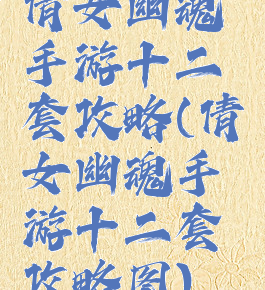 倩女幽魂
手游十二
套攻略(倩
女幽魂手
游十二套
攻略图)